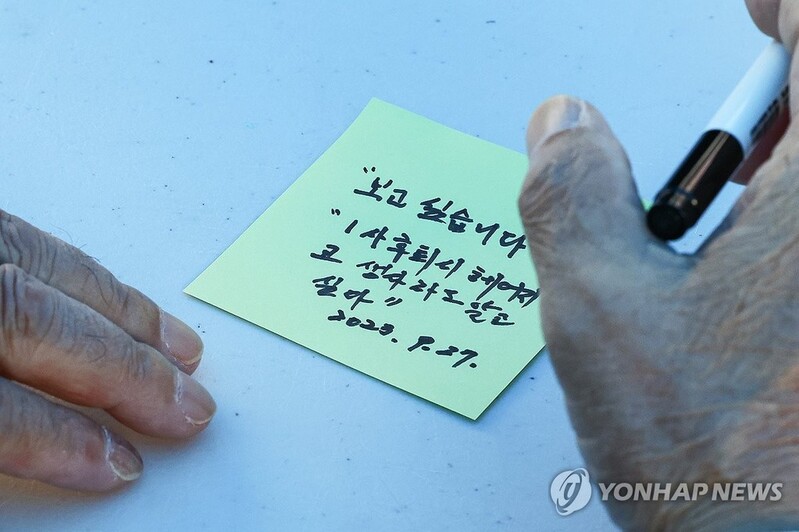 "보고 싶습니다
"1사후퇴시 헤어지
고 생사라도 알고
싶다"
2023. 9. 27.
YONHAP NEWS